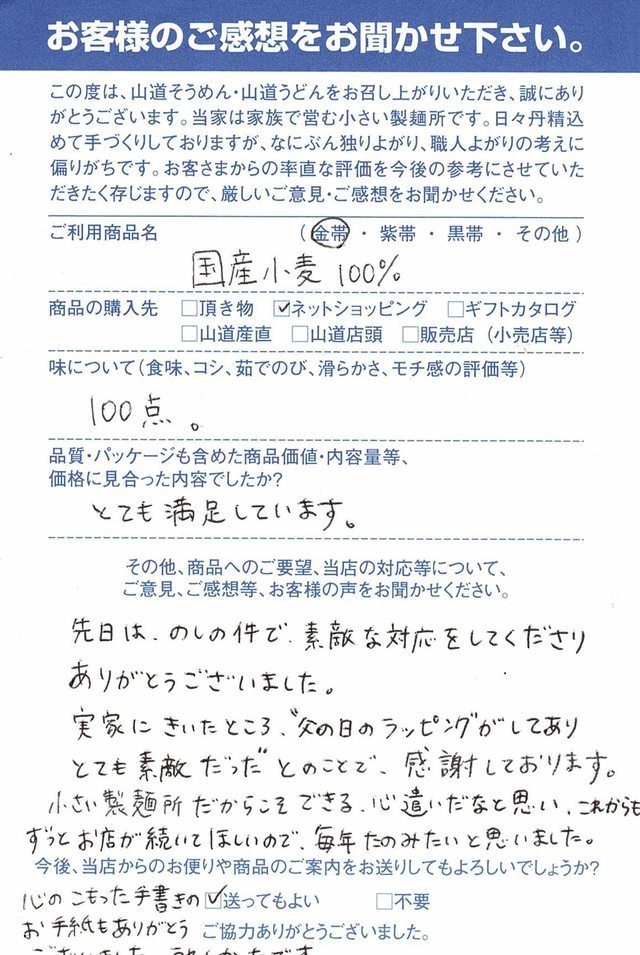 お客様のご感想をお聞かせ下さい。
この度は、山道そうめん・山道うどんをお召し上がりいただき、誠にあり
がとうございます。当家は家族で営む小さい製麺所です。日々丹精込
めて手づくりしておりますが、なにぶん独りよがり、職人よがりの考えに
偏りがちです。お客さまからの率直な評価を今後の参考にさせていた
だきたく存じますので、厳しいご意見・ご感想をお聞かせください。
ご利用商品名 （金帯・紫帯・黒帯・その他）
国産小麦100%
商品の購入先 □頂き物 ☑ネットショッピング □ギフトカタログ
□山道産直 □山道店頭 □販売店（小売店等）
味について（食味、コシ、茹でのび、滑らかさ、モチ感の評価等）
100点。
品質・パッケージも含めた商品価値・内容量等、
価格に見合った内容でしたか?
とても満足しています。
その他、商品へのご要望、当店の対応等について、
ご意見、ご感想等、お客様の声をお聞かせください。
先日は、のしの件で、素敵な対応をしてくださり
ありがとうございました。
実家にきいたところ、“父の日のラッピング”がしてあり
とても素敵だった”とのことで、感謝しております。
小さい製麺所だからこそできる、心遣いだなと思い、これからも
ずっとお店が続いてほしいので、毎年たのみたいと思いました。
今後、当店からのお便りや商品のご案内をお送りしてもよろしいでしょうか?
心のこもった手書きの ☑送ってもよい □不要
お手紙もありがとう ご協力ありがとうございました。
ございました